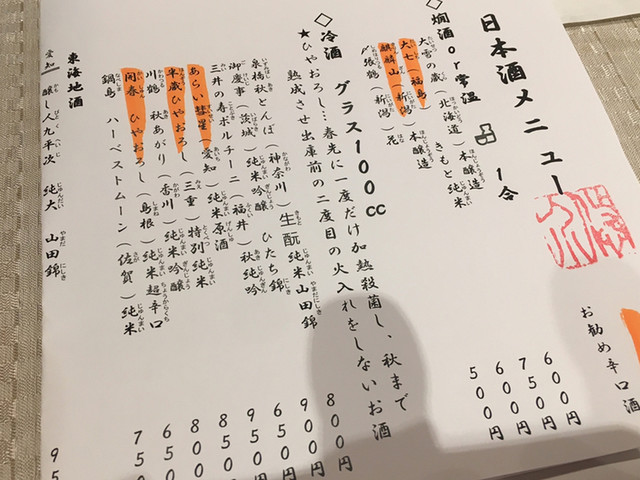 日本酒メニュー
お勧め辛口酒
◇燗酒or常温 1合
大雪の蔵(北海道)本醸造 600円
大七(福島)きもと純米 750円
麒麟山(新潟)本醸造 600円
〆張鶴(新潟)花 500円
◇冷酒 グラス100cc
★ひやおろし…春先に一度だけ加熱殺菌し、秋まで
熟成させ出庫前の二度目の火入れをしないお酒
泉橋秋とんぼ(神奈川)生酛純米山田錦 800円
御慶事(茨城)純米吟醸 ひたち錦 900円
三井の寿ポルチーニ(福井)秋純吟 650円
あらい彗星(愛知)純米原酒 950円
半蔵ひやおろし(三重)特別純米 850円
川鶴 秋あがり(香川)純米吟醸 850円
開春 ひやおろし(島根)純米超辛口 650円
鍋島 ハーベストムーン(佐賀)純米 750
東海地酒
愛知 醸し人九平次 純大 山田錦 95